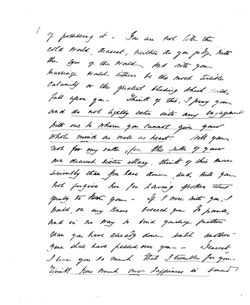 of possessing it – You are not like the
cold world, dearest, neither do you judge with
the eyes of the world, but with you
marriage would either be the most terrible
calamity or the greatest blessing which could
fall upon you. Think of this, I pray you
and do not lightly enter into any engagement
with one to whom you cannot give your
whole mind as well as heart. Will you
not for my sake, for the sake of your
own dearest sister Mary think of this more
seriously than you have done, and will you
not forgive me for having spoken thus
to you – If I were with you, I
would on my knees beseech you to pause,
and in no way to bind yourself further
than you have already done until another
year shall have passed over you – Dearest
I love you so much that I tremble for you.
how much our happiness is bound